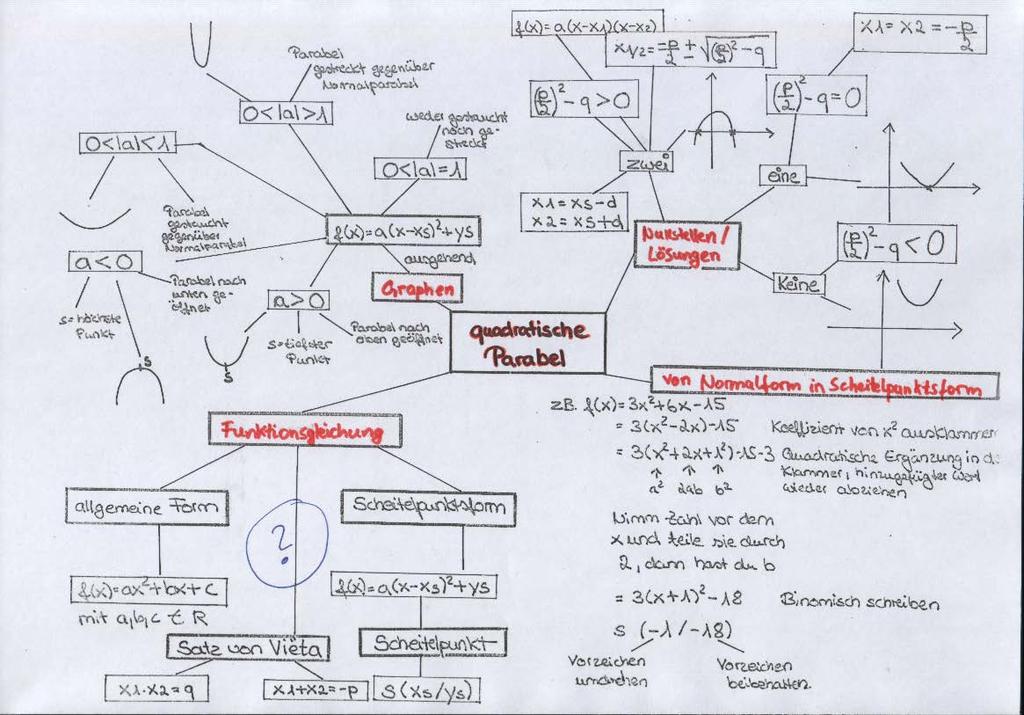 quadratische
Parabel
Graphen
ausgehend
f(x)=a(x-xs)²+ys
0<|a|>1
Parabel
gestreckt gegenüber
Normalparabel
0<|a|<1
Parabel
gestaucht
gegenüber
Normalparabel
0<|a|=1
weder gestaucht
noch ge-
streckt
a<0
Parabel nach
unten ge-
öffnet
s=höchste
Punkt
s
a>0
s
s=tiefster
Punkt
Parabel nach
oben geöffnet
Nullstellen/
Lösungen
zwei
f(x)=a(x-x1)(x-x2)
x1/2=-p/2±√(p/2)²-q
(p/2)²-q>0
x1=xs-d
x2=xs+d
eine
(p/2)²-q=0
x1=x2=-p/2
Keine
(p/2)²-q<0
von Normalform in Scheitelpunktsform
zB. f(x)=3x²+6x-15
=3(x²-2x)-15 Koeffizient von x² ausklammer
=3(x²+2x+1²)-15-3 Quadratische Ergänzung in d.
↑ ↑ ↑ Klammer, hinzugefügter Wert
a² 2ab b² wieder abziehen
Nimm Zahl vor dem
x und teile sie durch
2, dann hast du b
=3(x+1)²-18 Binomisch schreiben
s (-1/-18)
Vorzeichen
umdrehen
Vorzeichen
beibehalten.
Funktionsgleichung
allgemeine Form
f(x)=ax²+bx+c
mit a,b,c ∈ R
?
Satz von Viëta
x1·x2=q
x1+x2=-p
Scheitelpunktsform
f(x)=a(x-xs)²+ys
Scheitelpunkt
S(xs/ys)